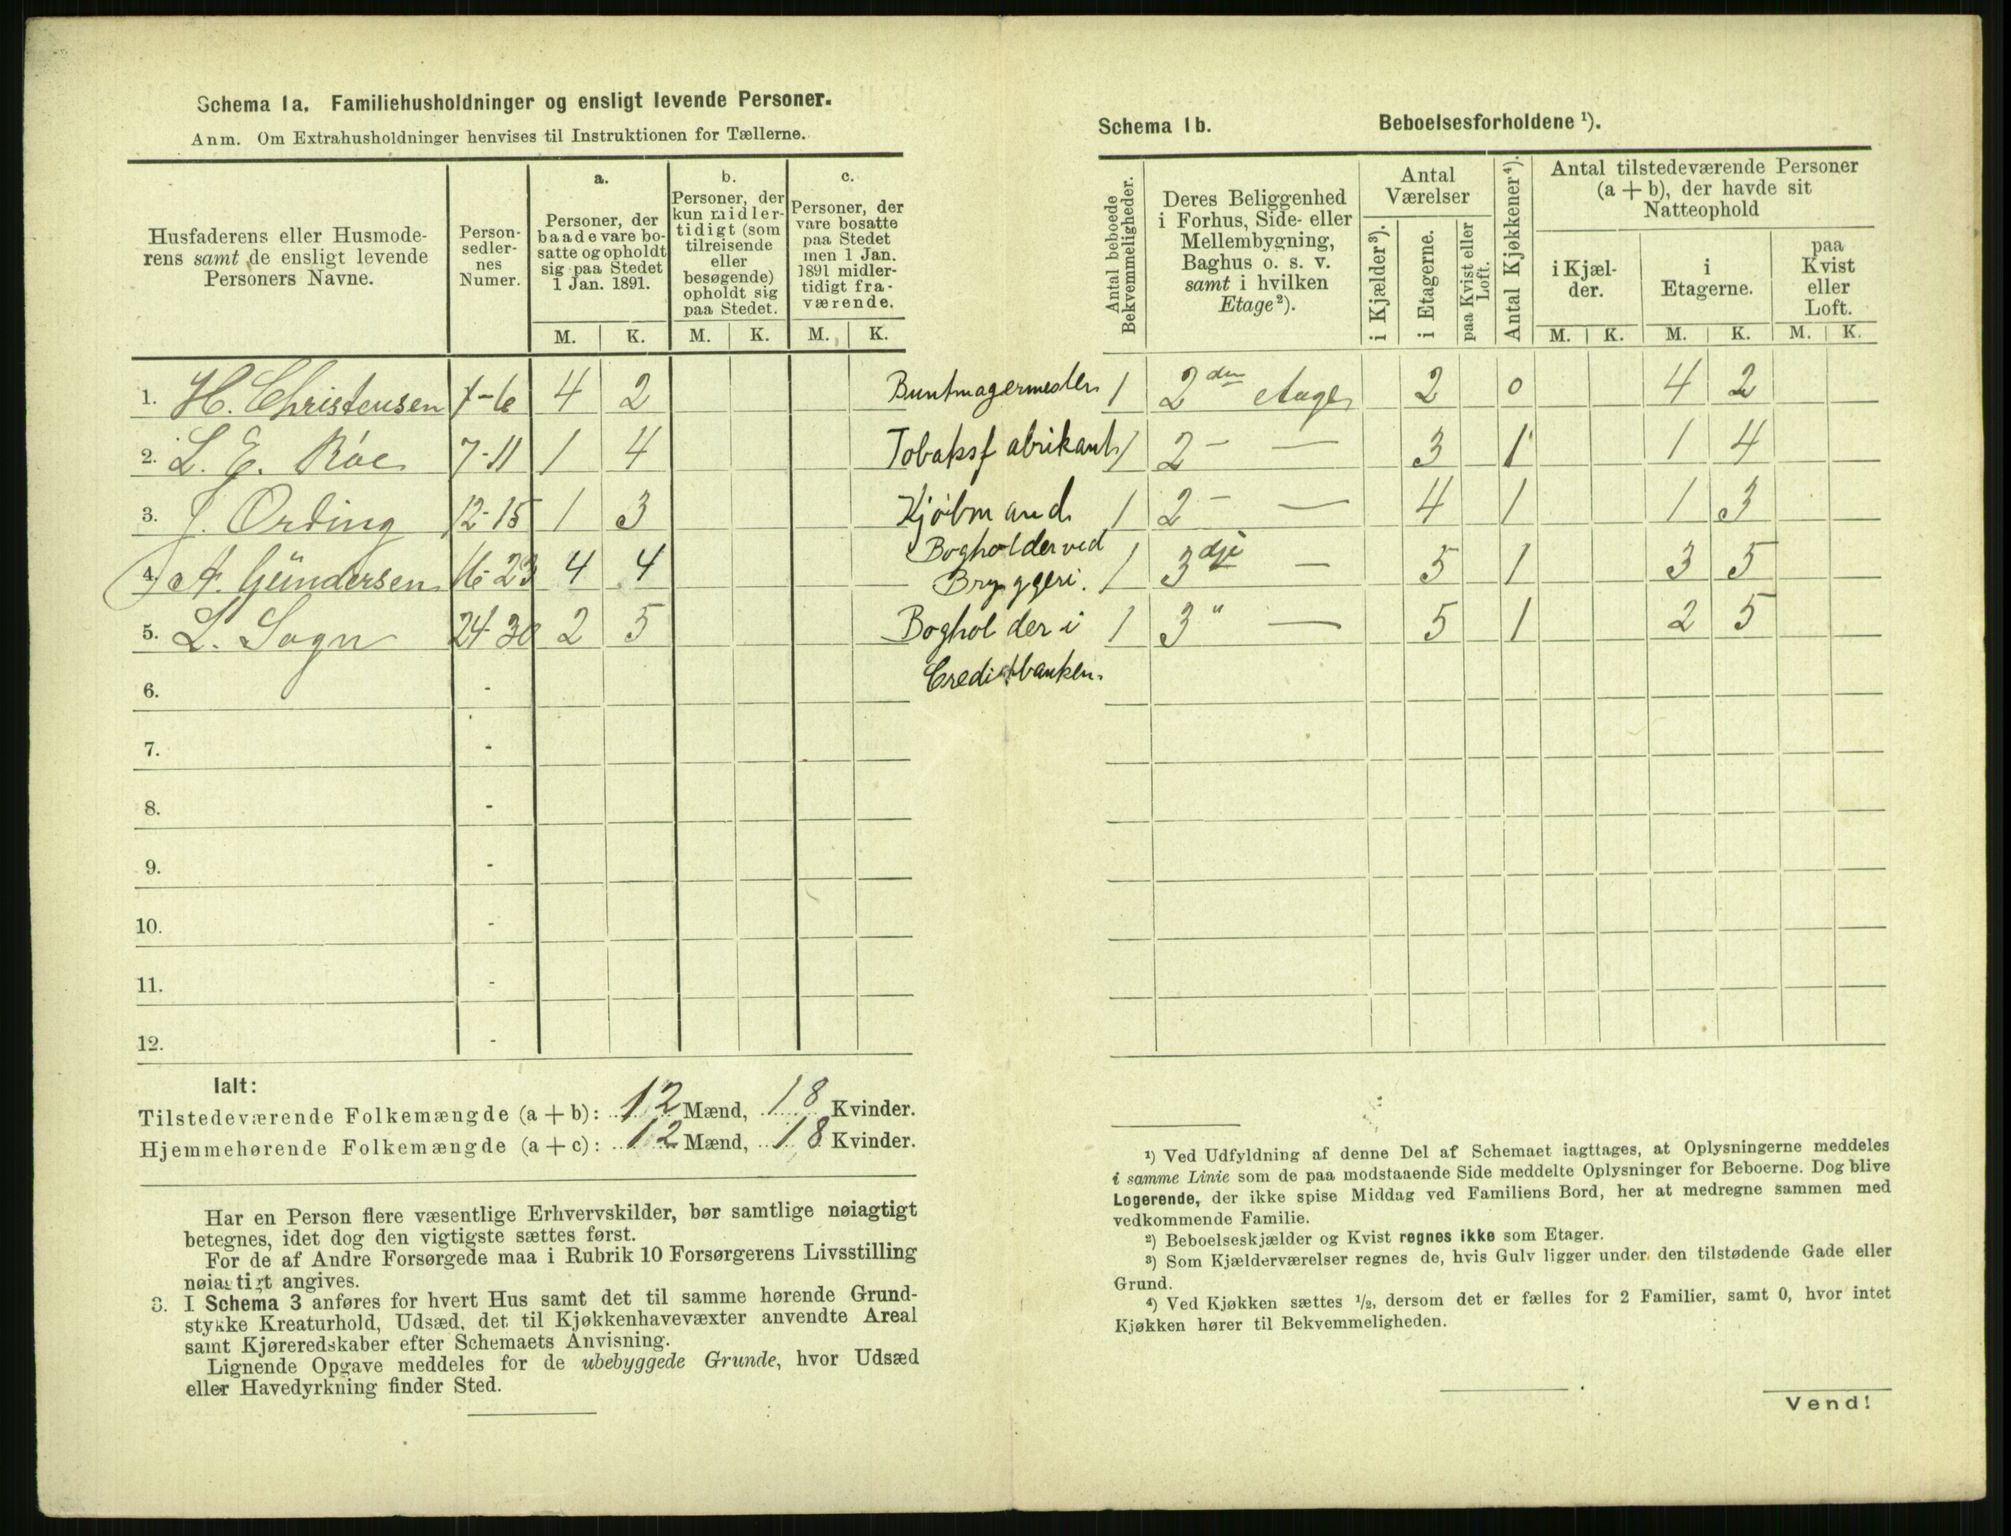 Schema 1a. Familiehusholdninger og ensligt levende Personer.
Anm. Om Extrahusholdninger henvises til Instruktionen for Tællerne.
Husfaderens eller Husmode-
rens samt de ensligt levende
Personers Navne.
Person-
sedler-
nes
Numer.
a.
Personer, der
baade vare bo-
satte og opholdt
sig paa Stedet
1 Jan. 1891.
b.
Personer, der
kun midler-
tidigt (som
tilreisende
eller
besøgende)
opholdt sig
paa Stedet.
c.
Personer, der
vare bosatte
paa Stedet
men 1 Jan.
1891 midler-
tidigt fra-
værende.
M. K. M. K. M. K.
1. H. Christensen 1-6 4 2
2. L. E. Röe 7-11 1 4
3. J. Ording 12-15 1 3
4. A. Gündersen 16-23 4 4
5. L. Sogn 24-30 2 5
6. -
7. -
8. -
9. -
10. -
11. -
12. -
Ialt:
Tilstedeværende Folkemængde (a + b): 12 Mænd, 18 Kvinder.
Hjemmehørende Folkemængde (a + c): 12 Mænd, 18 Kvinder.
Har en Person flere væsentlige Erhvervskilder, bør samtlige nøiagtigt
betegnes, idet dog den vigtigste sættes først.
For de af Andre Forsørgede maa i Rubrik 10 Forsørgerens Livsstilling
nøiagtigt angives.
3. I Schema 3 anføres for hvert Hus samt det til samme hørende Grund-
stykke Kreaturhold, Udsæd, det til Kjøkkenhavevæxter anvendte Areal
samt Kjøreredskaber efter Schemaets Anvisning.
Lignende Opgave meddeles for de ubebyggede Grunde, hvor Udsæd
eller Havedyrkning finder Sted.
Schema 1b. Beboelsesforholdene ¹).
Antal beboede
Bekvemmeligheder.
Deres Beliggenhed
i Forhus, Side- eller
Mellembygning,
Baghus o. s. v.
samt i hvilken
Etage²).
Antal
Værelser
i Kjælder³).
i Etagerne.
paa Kvist eller
Loft.
Antal Kjøkkener⁴).
Antal tilstedeværende Personer
(a + b), der havde sit
Natteophold
i Kjæl-
der.
i
Etagerne.
paa
Kvist
eller
Loft.
M. K. M. K. M. K.
Buntmagermester 1 2den Etage 2 0 4 2
Tobaksfabrikant 1 2 - — 3 1 1 4
Kjøbmand 1 2 - — 4 1 1 3
Bogholder ved
Bryggeri. 1 3dje — 5 1 3 5
Bogholder i 1 3 " — 5 1 2 5
Creditbanken.
¹) Ved Udfyldning af denne Del af Schemaet iagttages, at Oplysningerne meddeles
i samme Linie som de paa modstaaende Side meddelte Oplysninger for Beboerne. Dog blive
Logerende, der ikke spise Middag ved Familiens Bord, her at medregne sammen med
vedkommende Familie.
²) Beboelseskjælder og Kvist regnes ikke som Etager.
³) Som Kjælderværelser regnes de, hvis Gulv ligger under den tilstødende Gade eller
Grund.
⁴) Ved Kjøkken sættes ½, dersom det er fælles for 2 Familier, samt 0, hvor intet
Kjøkken hører til Bekvemmeligheden.
Vend!